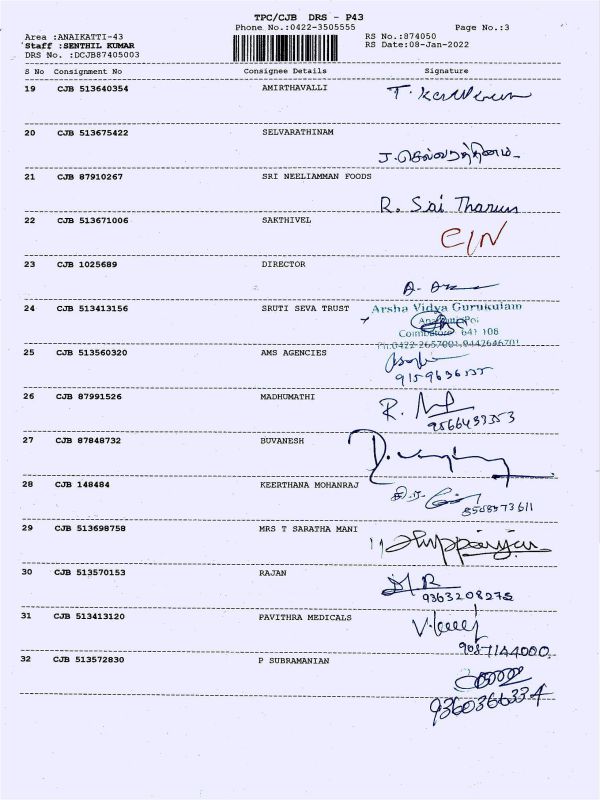 TPC/CJB DRS - P43
Phone No.:0422-3505555 Page No.:3
Area :ANAIKATTI-43 RS No.:874050
Staff :SENTHIL KUMAR RS Date:08-Jan-2022
DRS No. :DCJB87405003
S No Consignment No Consignee Details Signature
19 CJB 513640354 AMIRTHAVALLI
20 CJB 513675422 SELVARATHINAM
J. செல்வரத்தினம்
21 CJB 87910267 SRI NEELIAMMAN FOODS
R. Sai Tharun
22 CJB 513671006 SAKTHIVEL
E/N
23 CJB 1025689 DIRECTOR
24 CJB 513413156 SRUTI SEVA TRUST Arsha Vidya Gurukulam
Coimbatore 641 108
Ph:0422-2657001,9442646701
25 CJB 513560320 AMS AGENCIES
9159636535
26 CJB 87991526 MADHUMATHI
9566437353
27 CJB 87848732 BUVANESH
28 CJB 148484 KEERTHANA MOHANRAJ
8508573611
29 CJB 513698758 MRS T SARATHA MANI
30 CJB 513570153 RAJAN
9363208278
31 CJB 513413120 PAVITHRA MEDICALS
9087144000
32 CJB 513572830 P SUBRAMANIAN
9360366334